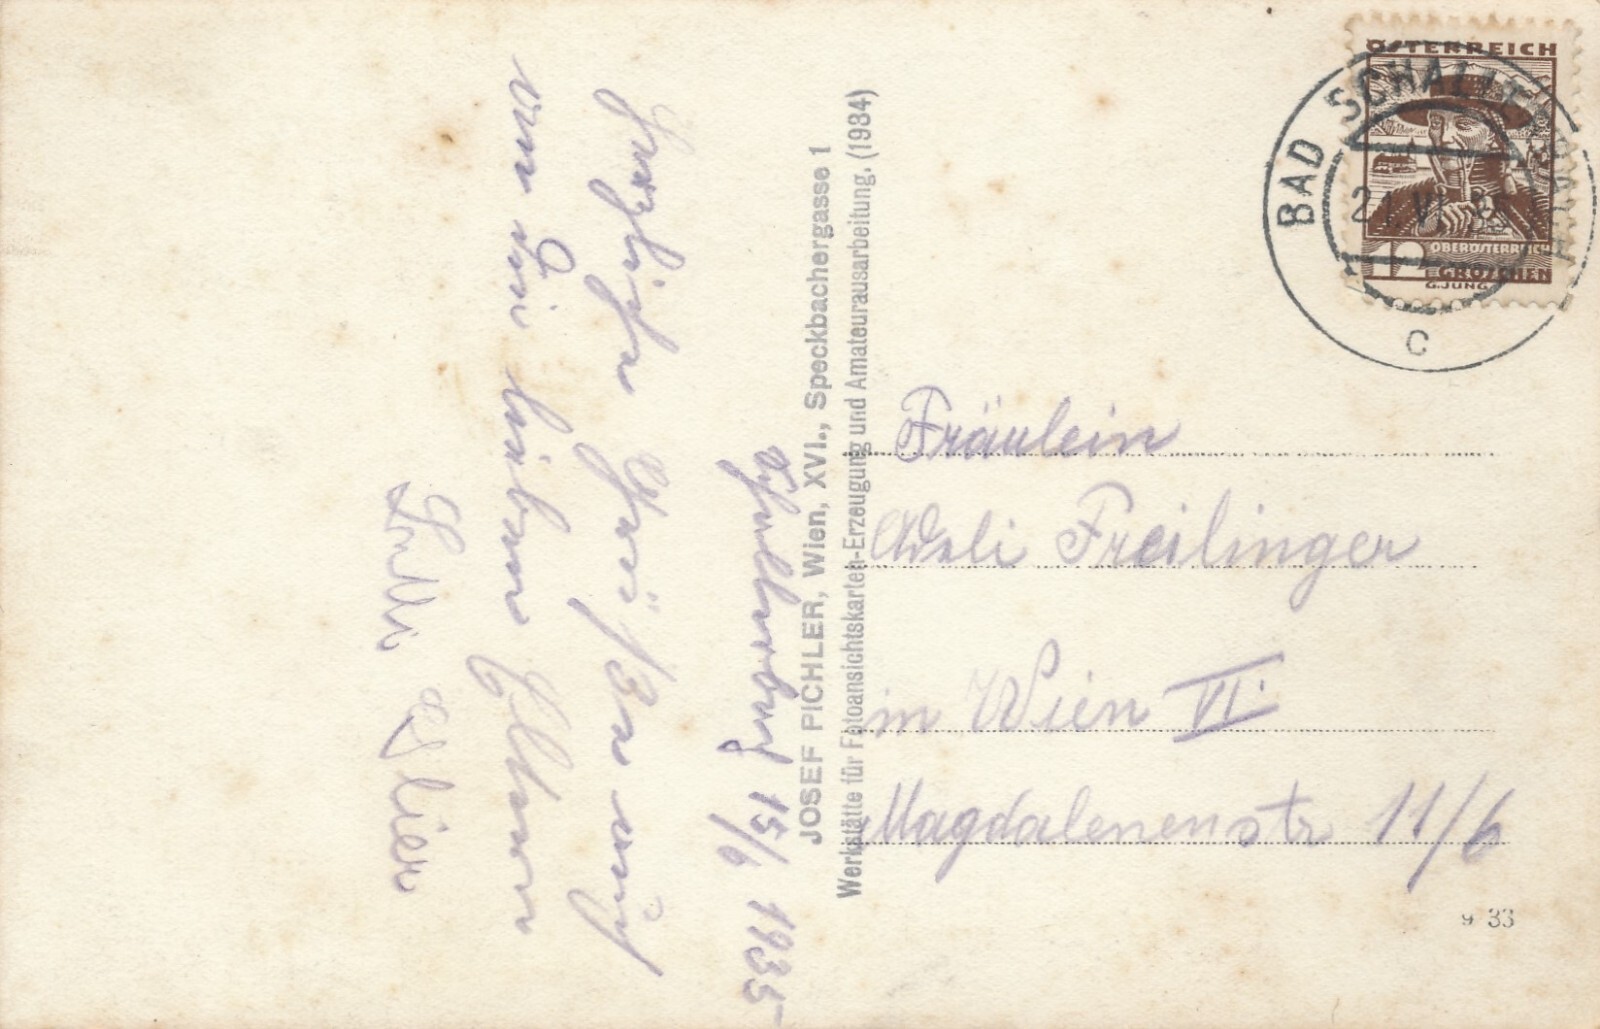 Schallerbach 15/6 1935
Herzliche Grüße auch
von den lieben Eltern
Lilli
JOSEF PICHLER, Wien, XVI., Speckbachergasse 1
Werkstätte für Fotoansichtskarten-Erzeugung und Amateurausarbeitung, (1934)
ÖSTERREICH
OBERÖSTERREICH
12 GROSCHEN
G.JUNG
BAD SCHALLERBACH
21 VI 35
C
Fräulein
Freilinger
in Wien VI.
Magdalenenstr 11/6
9 33